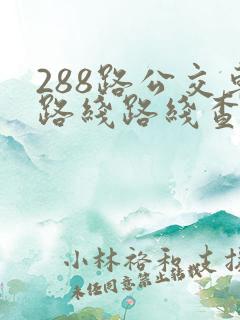 288路公交车
路线路线查
小林裕和支持
未经同意禁止转载